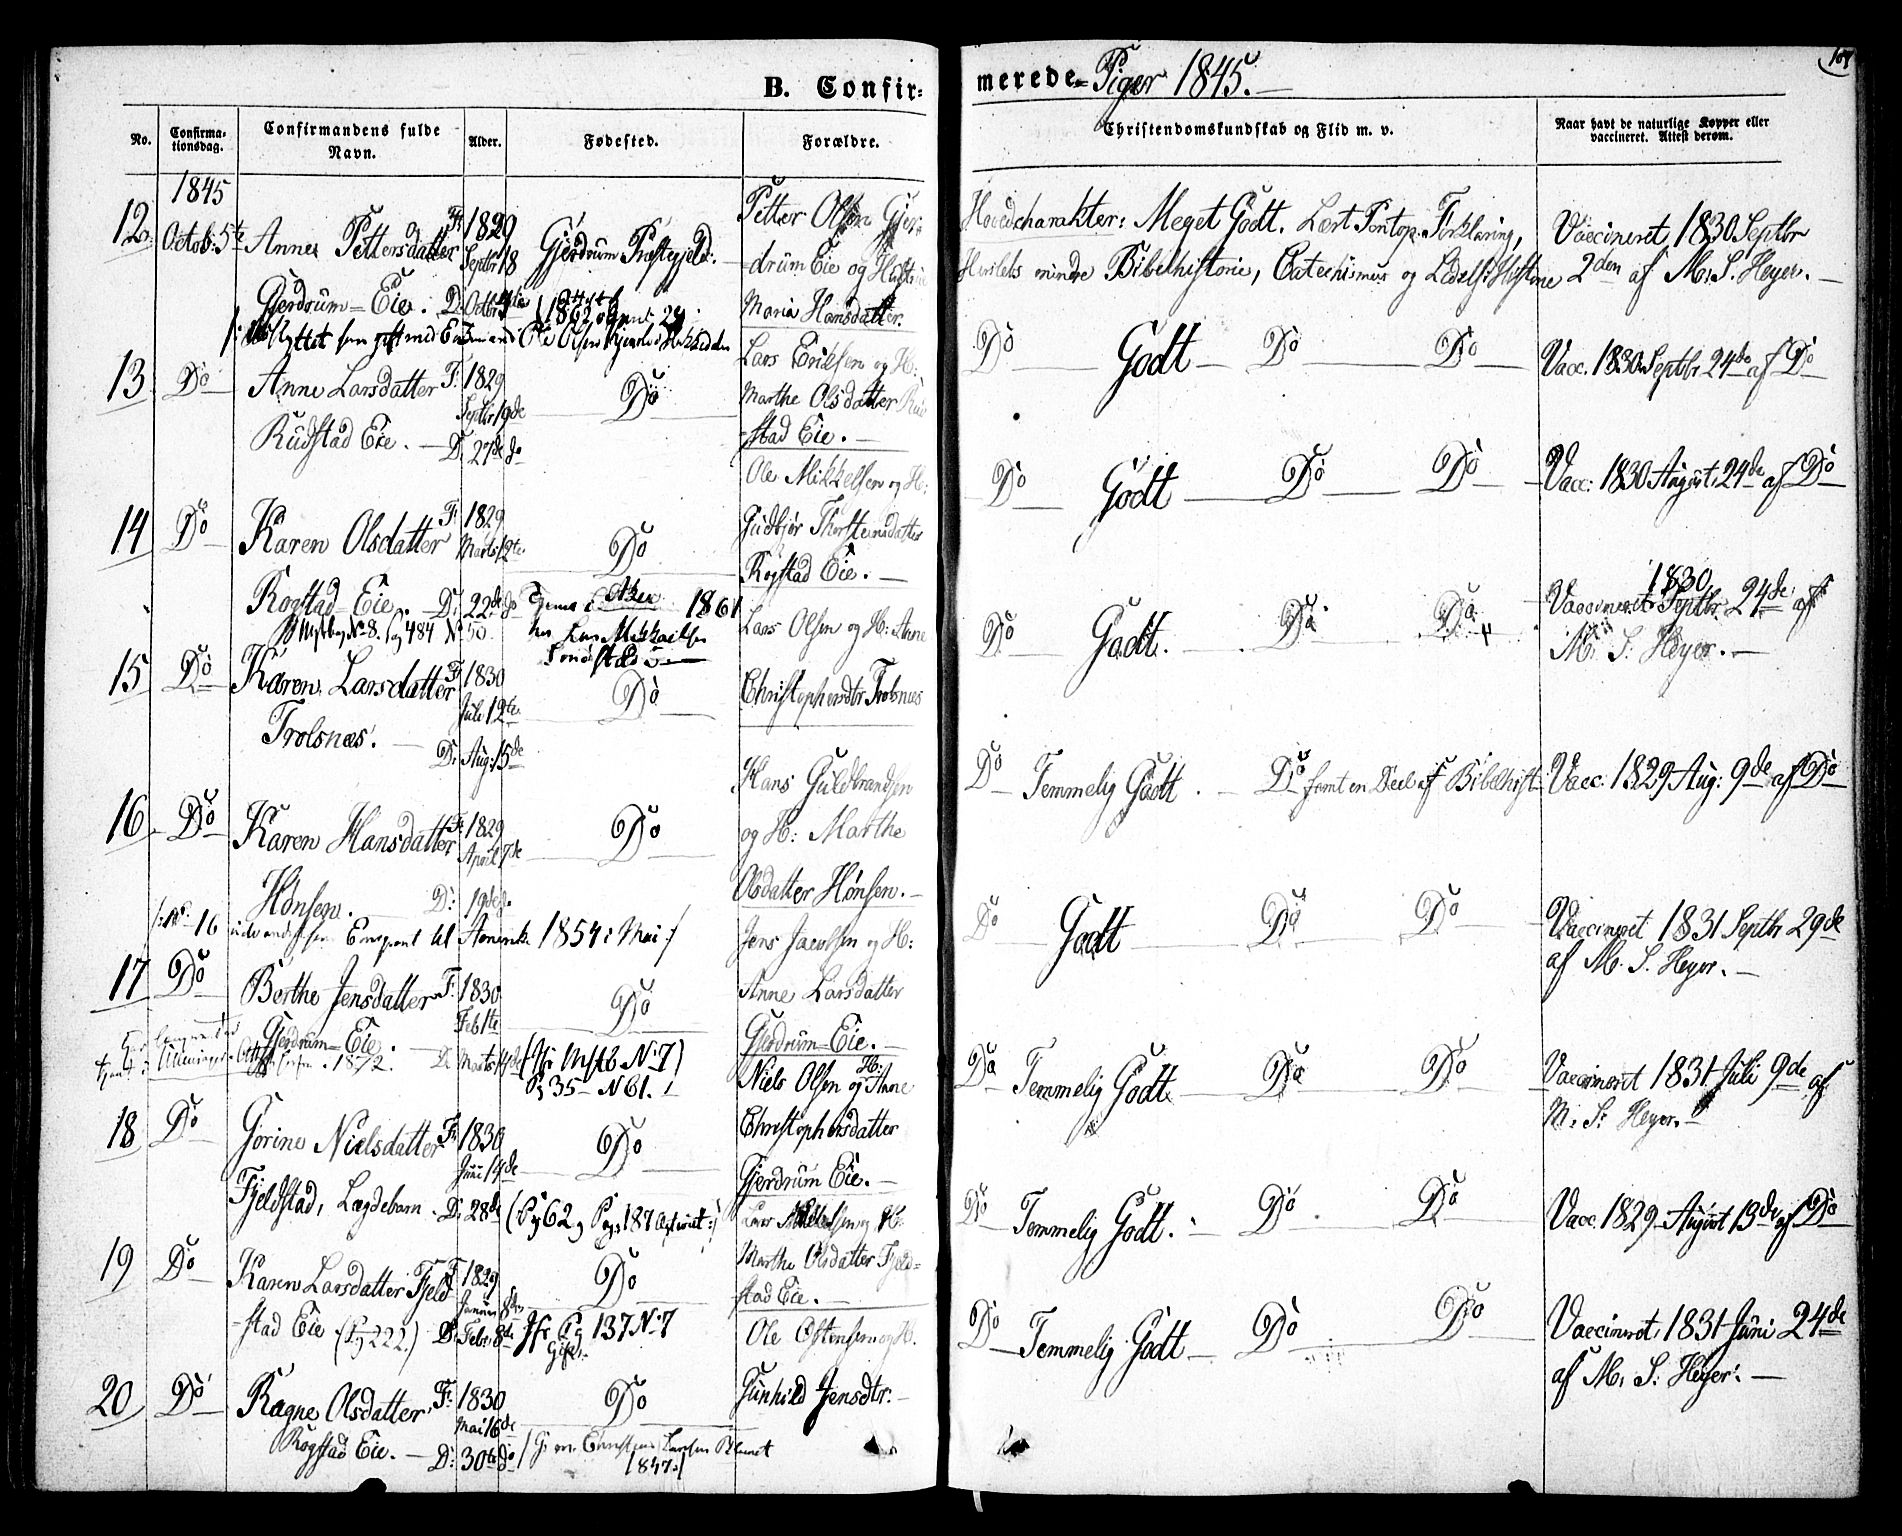 B. Confir=
merede= Piger 1845.
No.
Confirma-
tionsdag.
Confirmandens fulde
Navn.
Alder.
Fødested.
Forældre.
Christendomskundskab og Flid m. v.
Naar havt de naturlige Kopper eller
vaccineret. Attest derom.
1845
12. Octob: 5te Anne Pettersdatter F: 1829 Septbr 18 Gjerdrum Præstegjeld.
Gjerdrum=Eie. D: Octbr
Petter Olsen Gjer=
drum Eie og Hustru
Maria Hansdatter.
Hovedcharakter: Meget Godt. Lært Pontop: Forklaring,
mindre Bibelhistorie, Catechismus og Lidelses Historie
Vaccineret, 1830 Septbr
2den af M. S. Heyer.
13 Do Anne Larsdatter F: 1829 Septbr 19de Do
Rudstad Eie. D: 27de do
Lars Eriksen og H:
Marthe Olsdatter Rud
=stad Eie.
Do Godt Do Do
Vacc. 1830 Septbr 24de af Do
14 Do Karen Olsdatter F: 1829 Marts 12te Do
Rogstad=Eie. D: 22de do
No 8. Pag 484 No 50.
1861
Ole Mikkelsen og H:
Gudbjør Thorstensdatter
Rogstad Eie.
Do Godt Do Do
Vacc: 1830 August, 24de af Do
15 Do Karen Larsdatter F: 1830 Juli 12te Do
Trolsnæs. D: Aug: 15de
Lars Olsen og H: Anne
Christophersdtr Trolsnæs
Do Godt. Do Do
1830
Vaccineret Septbr. 24de af
M. S. Heyer.
16 Do Karen Hansdatter F: 1829 April 7de Do
Hønsen. D: 19de do
/: No 16 udvandret som Emigrant til Amerika 1854 i Mai :/
Hans Guldbrandsen
og H: Marthe
Olsdatter Hønsen.
Do Temmelig Godt. Do samt en Deel af Bibelhist
Vacc: 1829 Aug: 9de af Do
17 Do Berthe Jensdatter F: 1830 Feb 1te Do
Gjerdrum=Eie. D: Marts 14de
1872.
(Jfr Mstb No 7)
Pg 35 - N 61.
Jens Jacobsen og H:
Anne Larsdatter
Gjerdrum=Eie.
Do Godt Do Do
Vaccineret 1831 Septbr 29de
af M. S. Heyer.
18 Do Gorine Nielsdatter F: 1830 Juni 14de Do
Fjeldstad, Lægdebarn. D: 28de
Niels Olsen og H: Anne
Christophersdatter
Gjerdrum Eie.
Do Temmelig Godt. Do Do
Vaccineret 1831 Juli 9de af
M. S: Heyer.
19 Do Karen Larsdatter Fjeld F: 1829 Januar 8de Do
=stad Eie (Pg 222.) D: Febr: 8de Jfr Pg 137 No 7
Gift.
Marthe Olsdatter Fjeld=
stad Eie.
Do Temmelig Godt. Do Do
Vacc. 1829 August 13de af Do
20 Do Ragne Olsdatter, F: 1830 Mai 16de Do
Rogstad Eie. D: 30te do
1847
Ole Ostensen og H.
Gunhild Jensdtr.
Do Temmelig Godt Do Do
Vaccineret, 1831 Juni 24de
af M. S: Heyer.